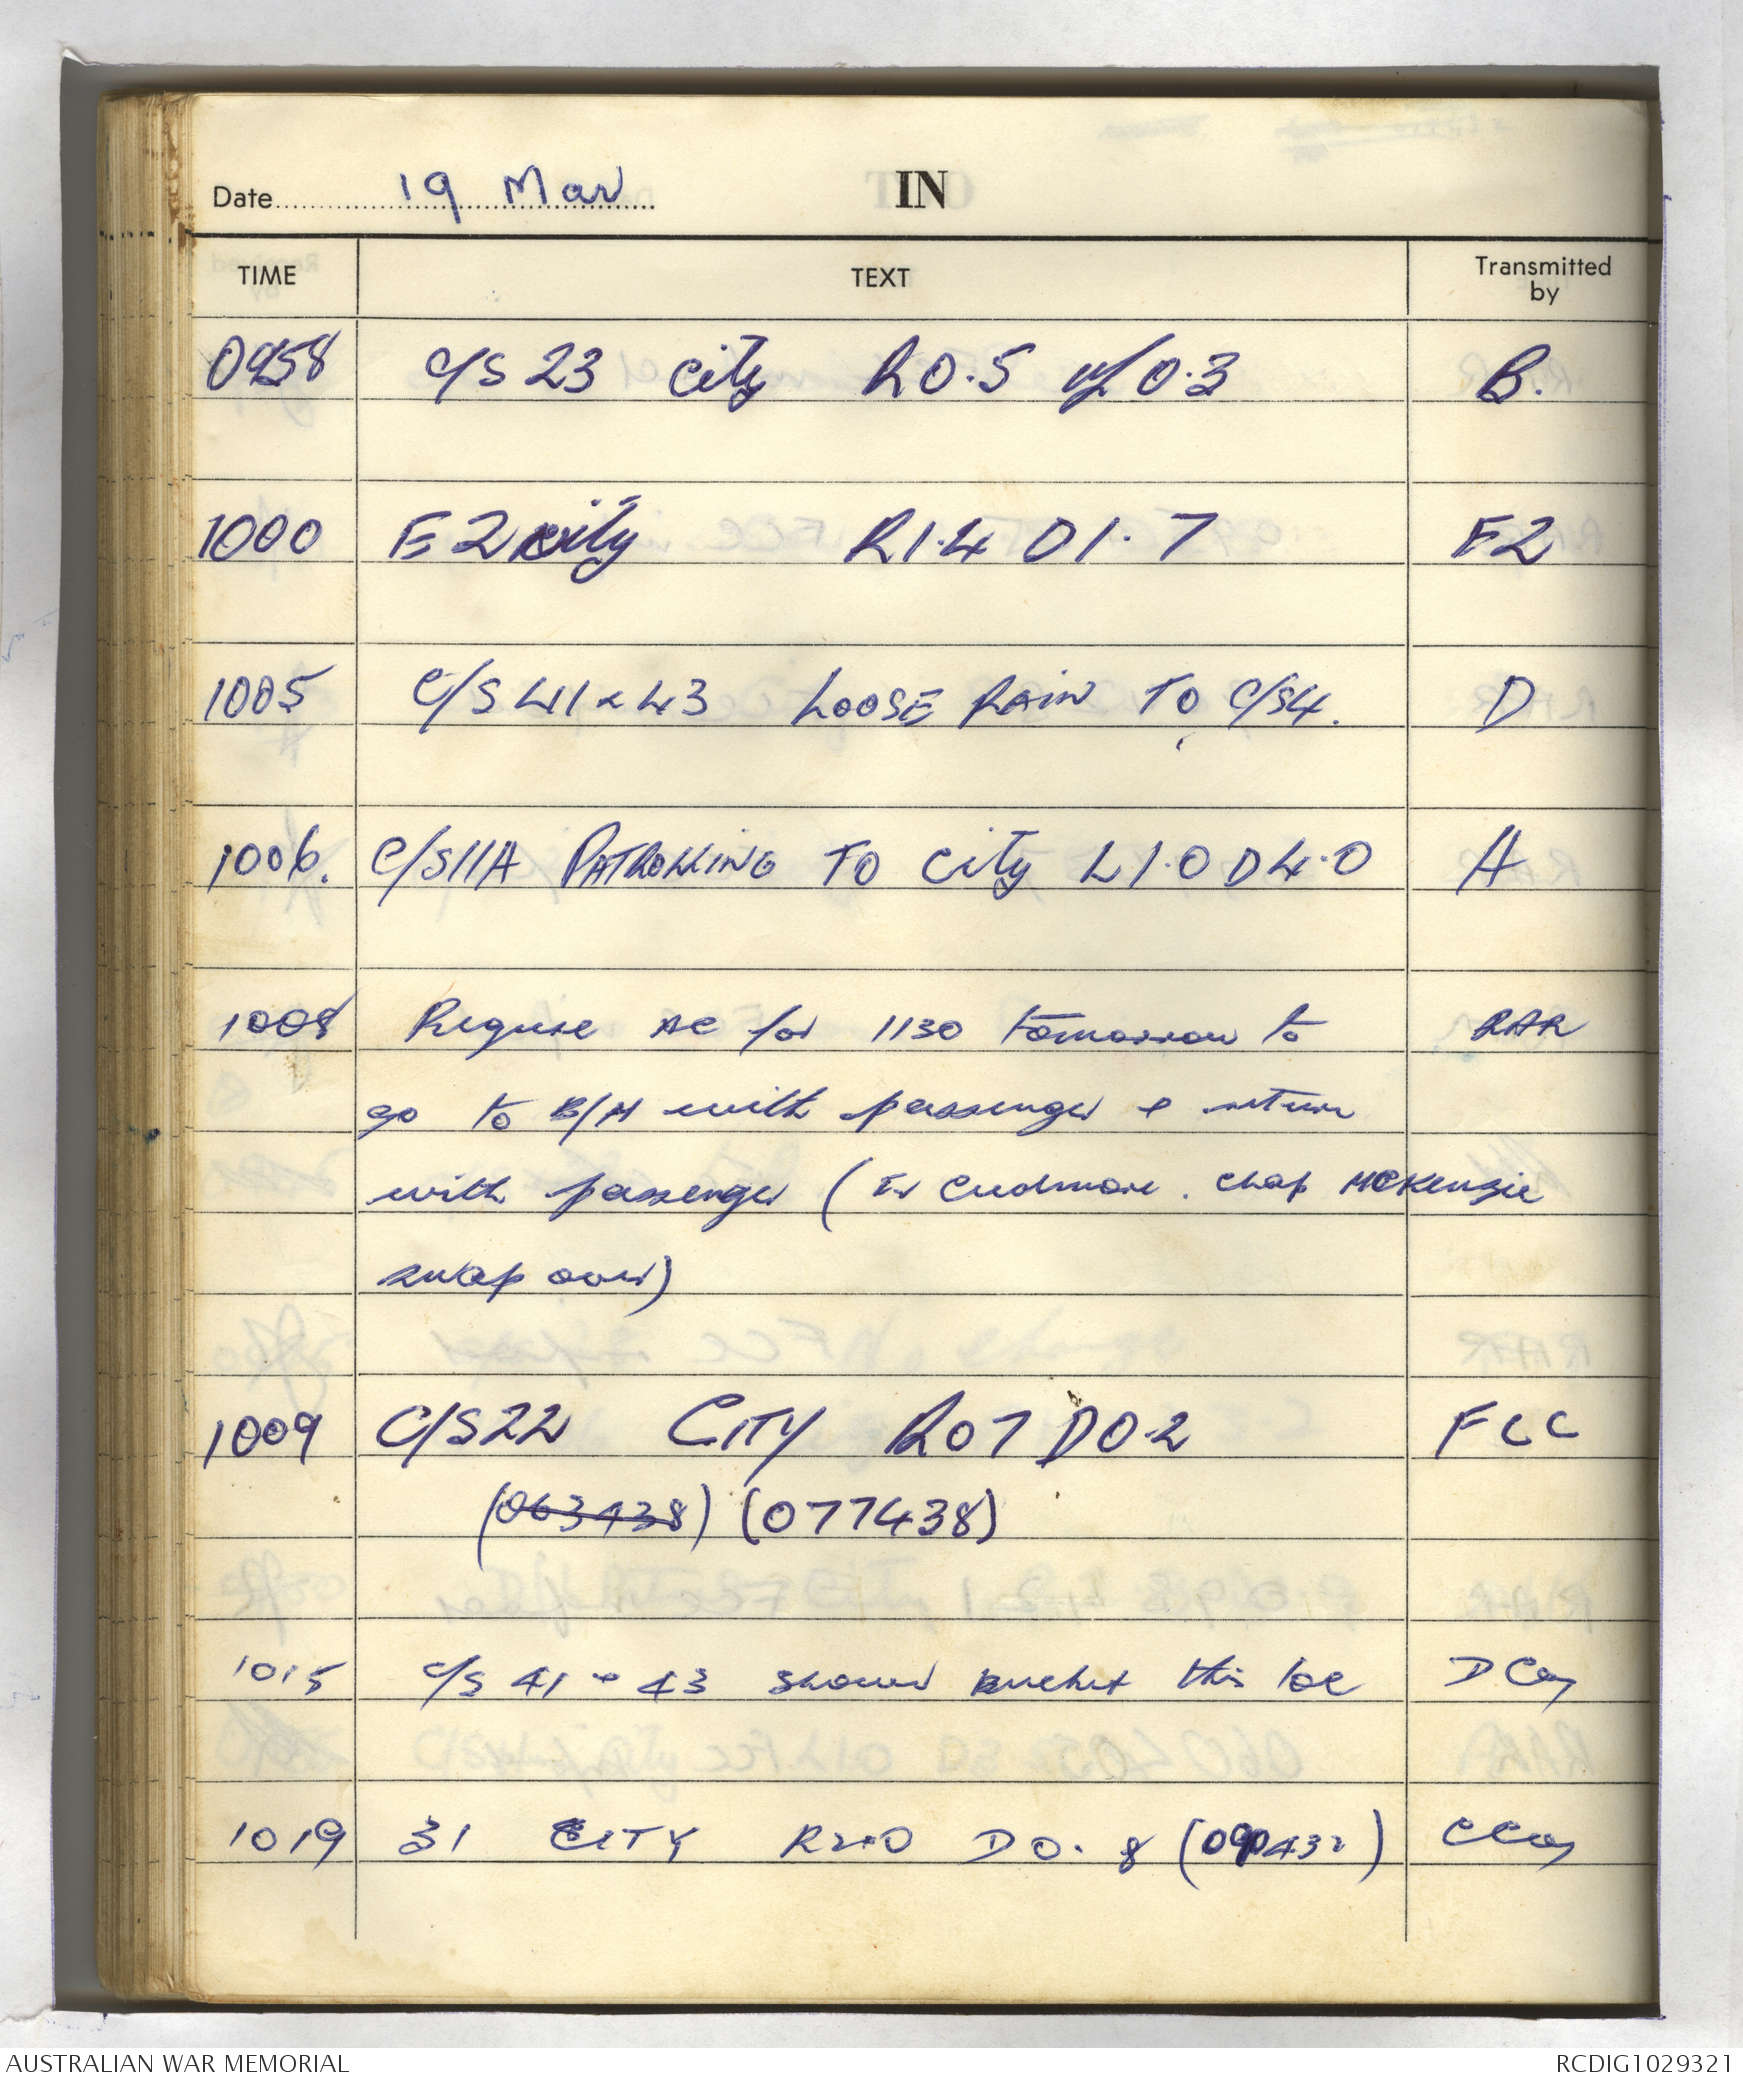 Date 19 Mar IN
TIME TEXT Transmitted
by
0958 C/S 23 City R0.5 U0.3 B.
1000 E2 City R1.4 D1.7 E2
1005 C/S 41 & 43 LOOSE RAIN TO C/S4. D
1006. C/S11A PATROLLING TO City L1.0 D4.0 A
1008 Require AC for 1130 tomorrow to RAR
go to B/H with passenger & return
with passenger ( Cudmore. Chap McKenzie
swap over)
1009 C/S22 CITY R07 D0.2 FCC
(063438) (077438)
1015 C/S 41 & 43 shower bucket this loc D Coy
1019 31 CITY R2.0 D0.8 (090432) C Coy
AUSTRALIAN WAR MEMORIAL RCDIG1029321